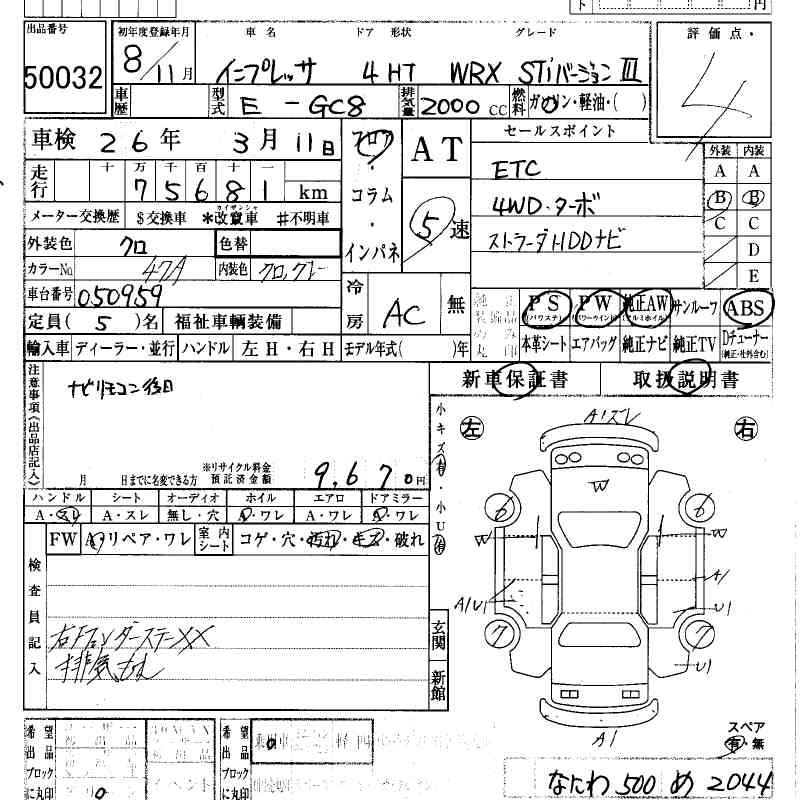 出品番号 初年度登録年月 車名 ドア 形状 グレード 評価点
50032 8/11月 インプレッサ 4HT WRX STiバージョンIII 4
車歴 型式 E-GC8 排気量 2000cc 燃料 ガソリン・軽油・( )
車検 26年 3月 11日 フロア・コラム・インパネ AT セールスポイント
走行 十 万 千 百 十 一
75681 km
ETC
4WD・ターボ
ストラーダHDDナビ
外装 内装
A A
B B
C C
D
E
メーター交換歴 $交換車 *改竄車 #不明車
5速
外装色 クロ 色替
カラーNo. 47A 内装色 クロ,グレー
車台番号 050959
冷房 AC 無
定員(5)名 福祉車輌装備
PS (パワステ) PW (パワーウインド) 純正AW (アルミホイル) サンルーフ ABS
本革シート エアバッグ 純正ナビ 純正TV Dチューナー (純正・社外含む)
輸入車 ディーラー・並行 ハンドル 左H・右H モデル年式( )年
新車保証書 取扱説明書
注意事項(出品店記入)
ナビリモコン後日
月 日までに名変できる方
※リサイクル料金預託済金額 9,670円
小キズ有・小U有
左 右
A1ズレ
W
6 6
W
A1
A1U1 U1
7 7
U1
A1
ハンドル シート オーディオ ホイル エアロ ドアミラー
A・スレ A・スレ 無し・穴 A・ワレ A・ワレ A・ワレ
FW A・リペア・ワレ 室内シート コゲ・穴・汚れ・キズ・破れ
検査員記入
右Fフェンダーステー××
排気もれ
玄関
新館
スペア
有・無
希望出品ブロックに丸印
希望出品ブロックに丸印
なにわ 500 め 2044